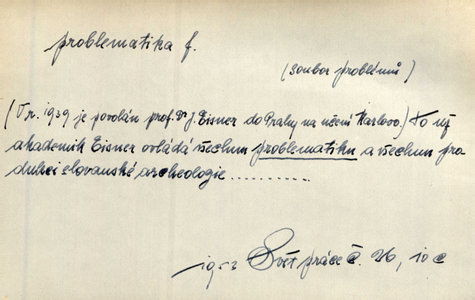 problematika f.
(soubor problémů)
(V r. 1939 je povolán prof. Dr J. Eisner do Prahy na učení Karlovo.) To už
akademik Eisner ovládá všechnu problematiku a všechnu pro-
dukci slovanské archeologie............
1953 Svět práce č. 26, 10 c